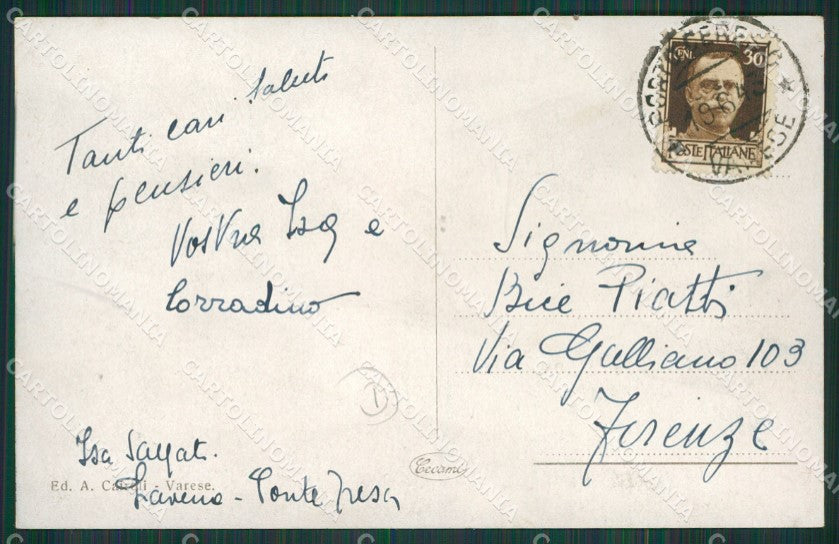 Tanti cari saluti
e pensieri.
Vostre Isa e
Corradino
Isa
Laveno - Ponte Tresa
Ed. A. - Varese.
Cecami
1
CENT 30
POSTE ITALIANE
VARESE
Signorine
Bice Piatti
Via Galliano 103
Firenze
CARTOLINOMANIA